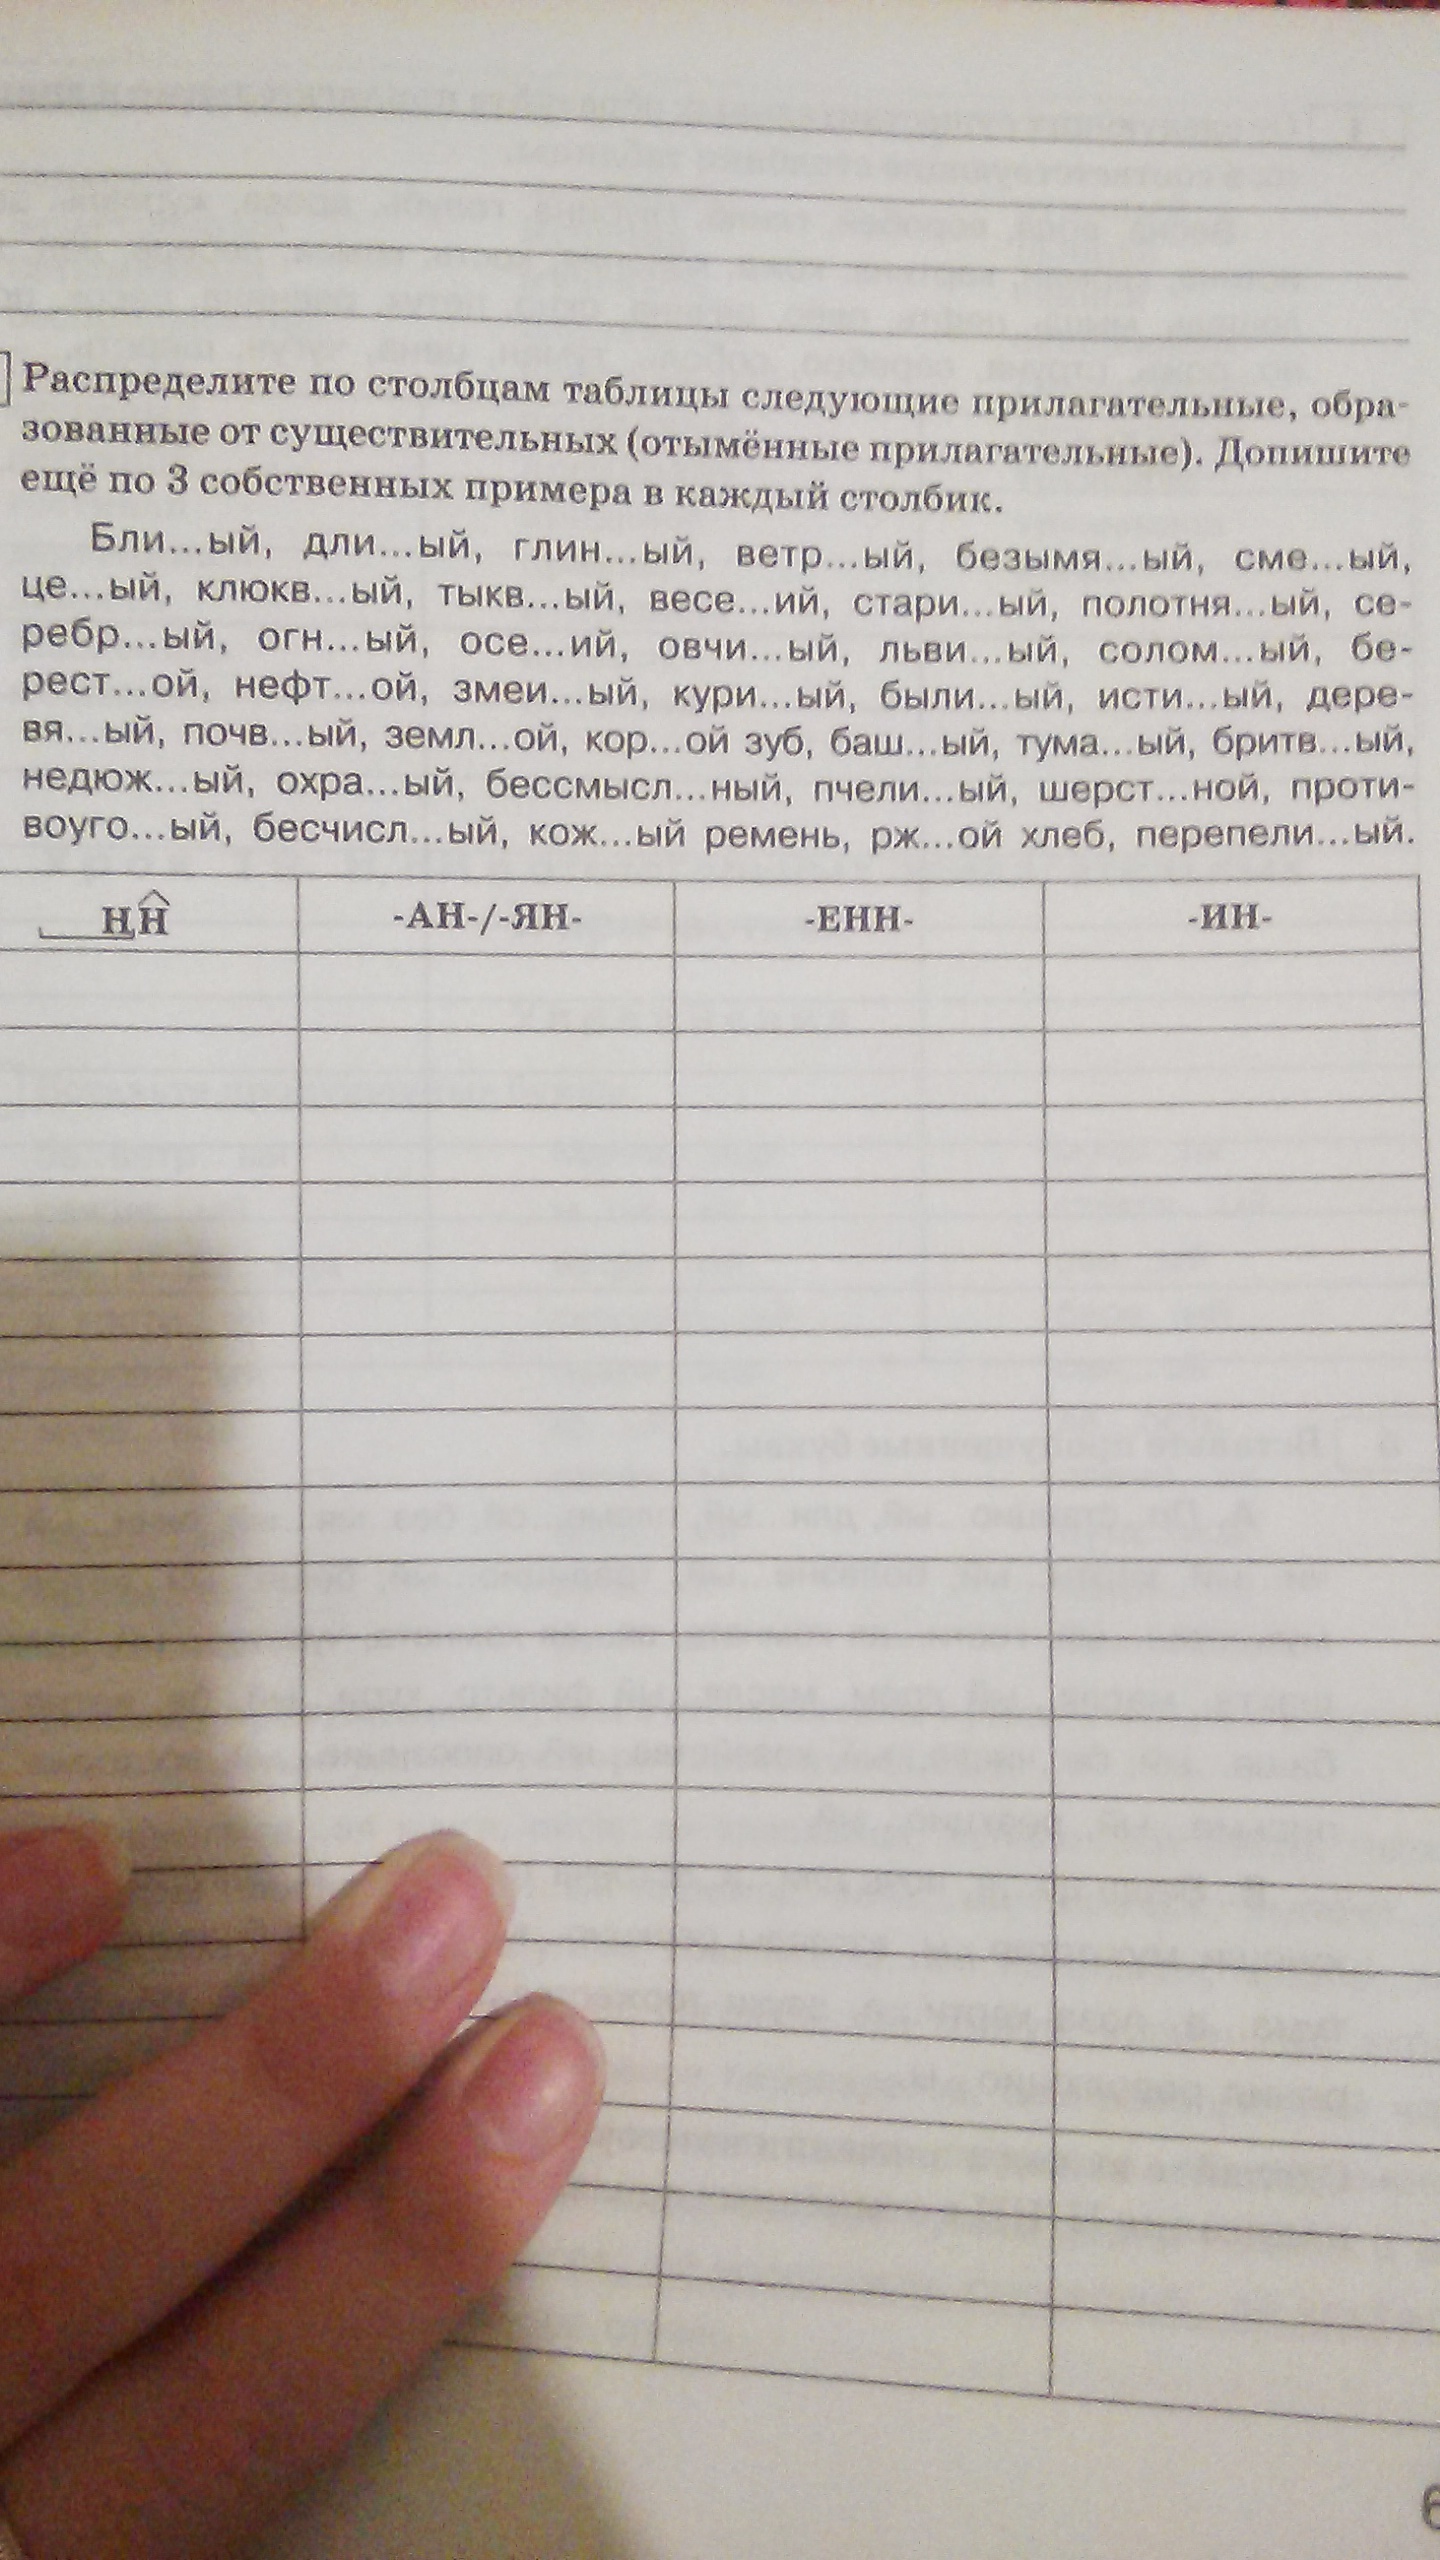 Распределите по столбцам таблицы следующие прилагательные, обра-
зованные от существительных (отымённые прилагательные). Допишите
ещё по 3 собственных примера в каждый столбик.
Бли...ый, дли...ый, глин...ый, ветр...ый, безымя...ый, сме...ый,
це...ый, клюкв...ый, тыкв...ый, весе...ий, стари...ый, полотня...ый, се-
ребр...ый, огн...ый, осе...ий, овчи...ый, льви...ый, солом...ый, бе-
рест...ой, нефт...ой, змеи...ый, кури...ый, были...ый, исти...ый, дере-
вя...ый, почв...ый, земл...ой, кор...ой зуб, баш...ый, тума...ый, бритв...ый,
недюж...ый, охра...ый, бессмысл...ный, пчели...ый, шерст...ной, проти-
воуго...ый, бесчисл...ый, кож...ый ремень, рж...ой хлеб, перепели...ый.
НН -АН-/-ЯН- -ЕНН- -ИН-
6